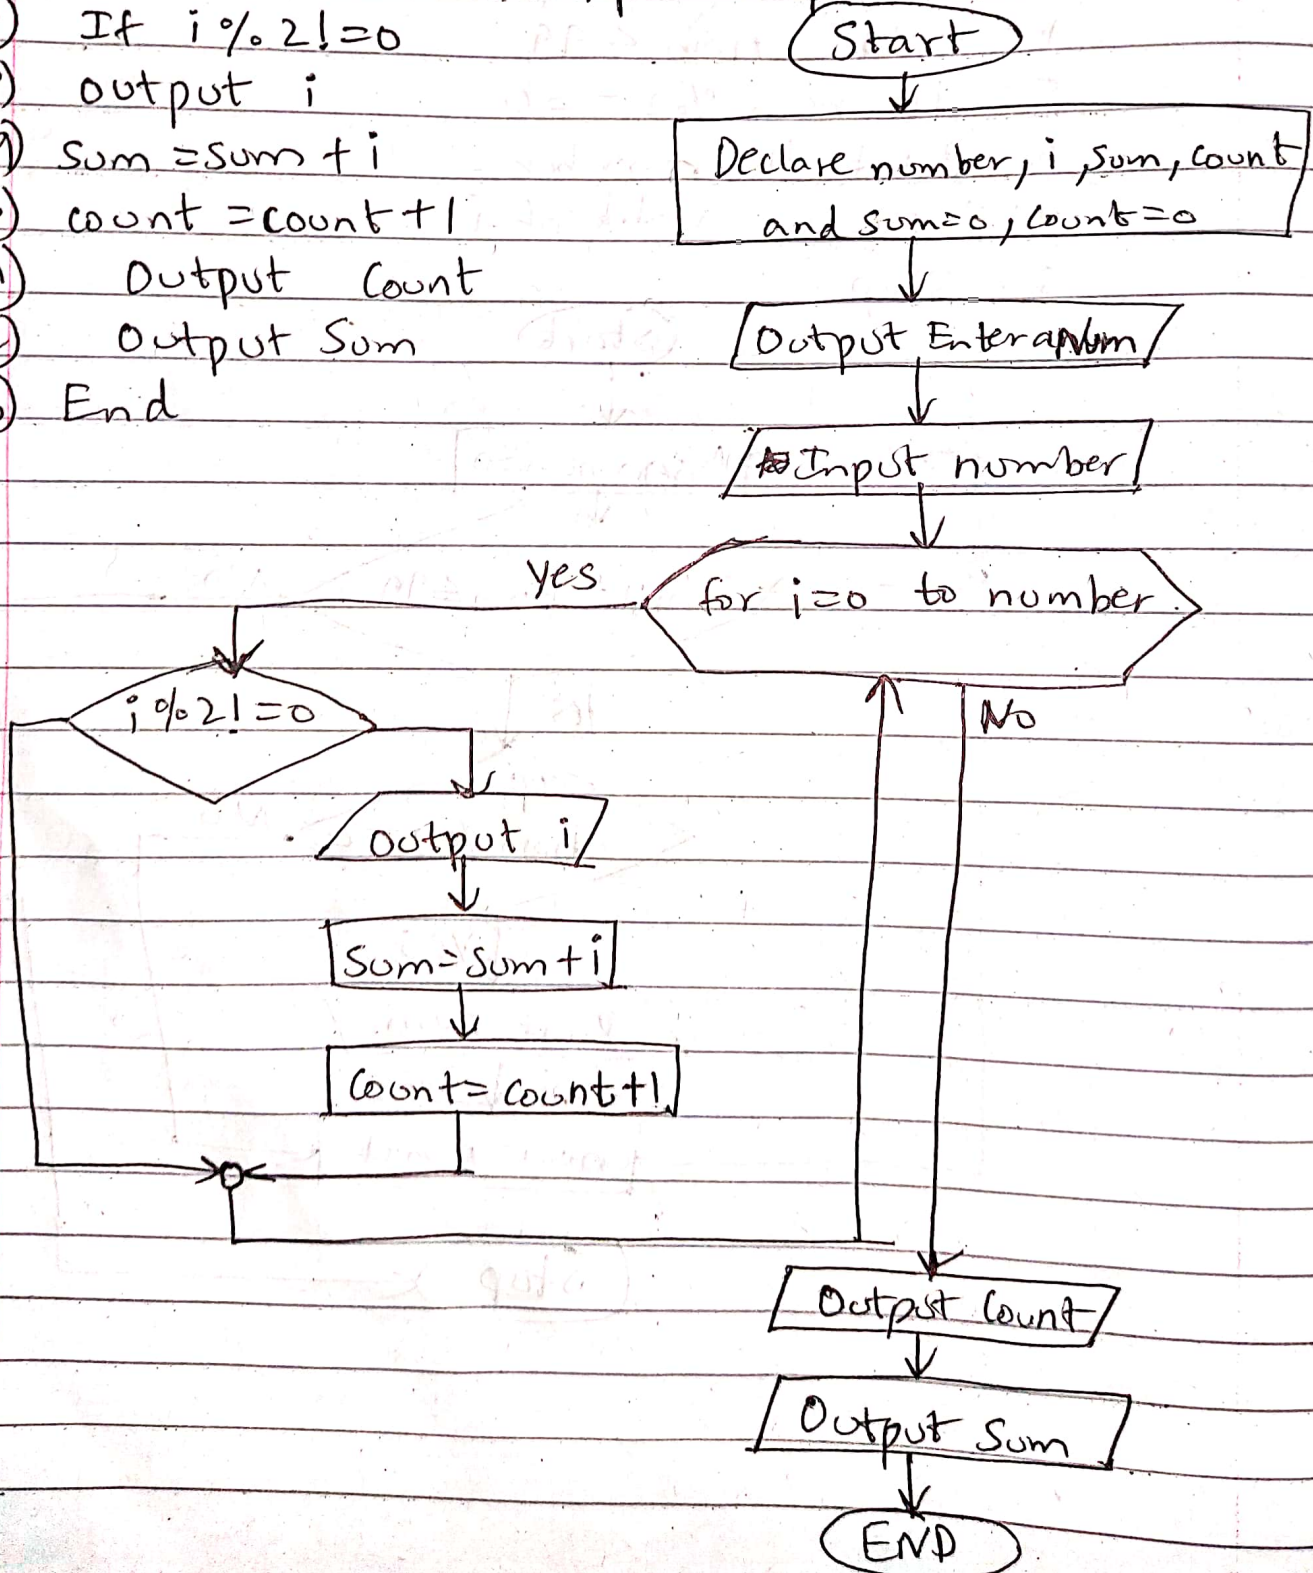 If i%2!=0
output i
sum =sum + i
count =count+1
Output Count
Output Sum
End
Start
Declare number, i, sum, count
and sum=0, count=0
Output Enter a Num
Input number
for i=0 to number
yes
No
i%2!=0
output i
Sum=Sum+i
Count=count+1
Output Count
Output Sum
END